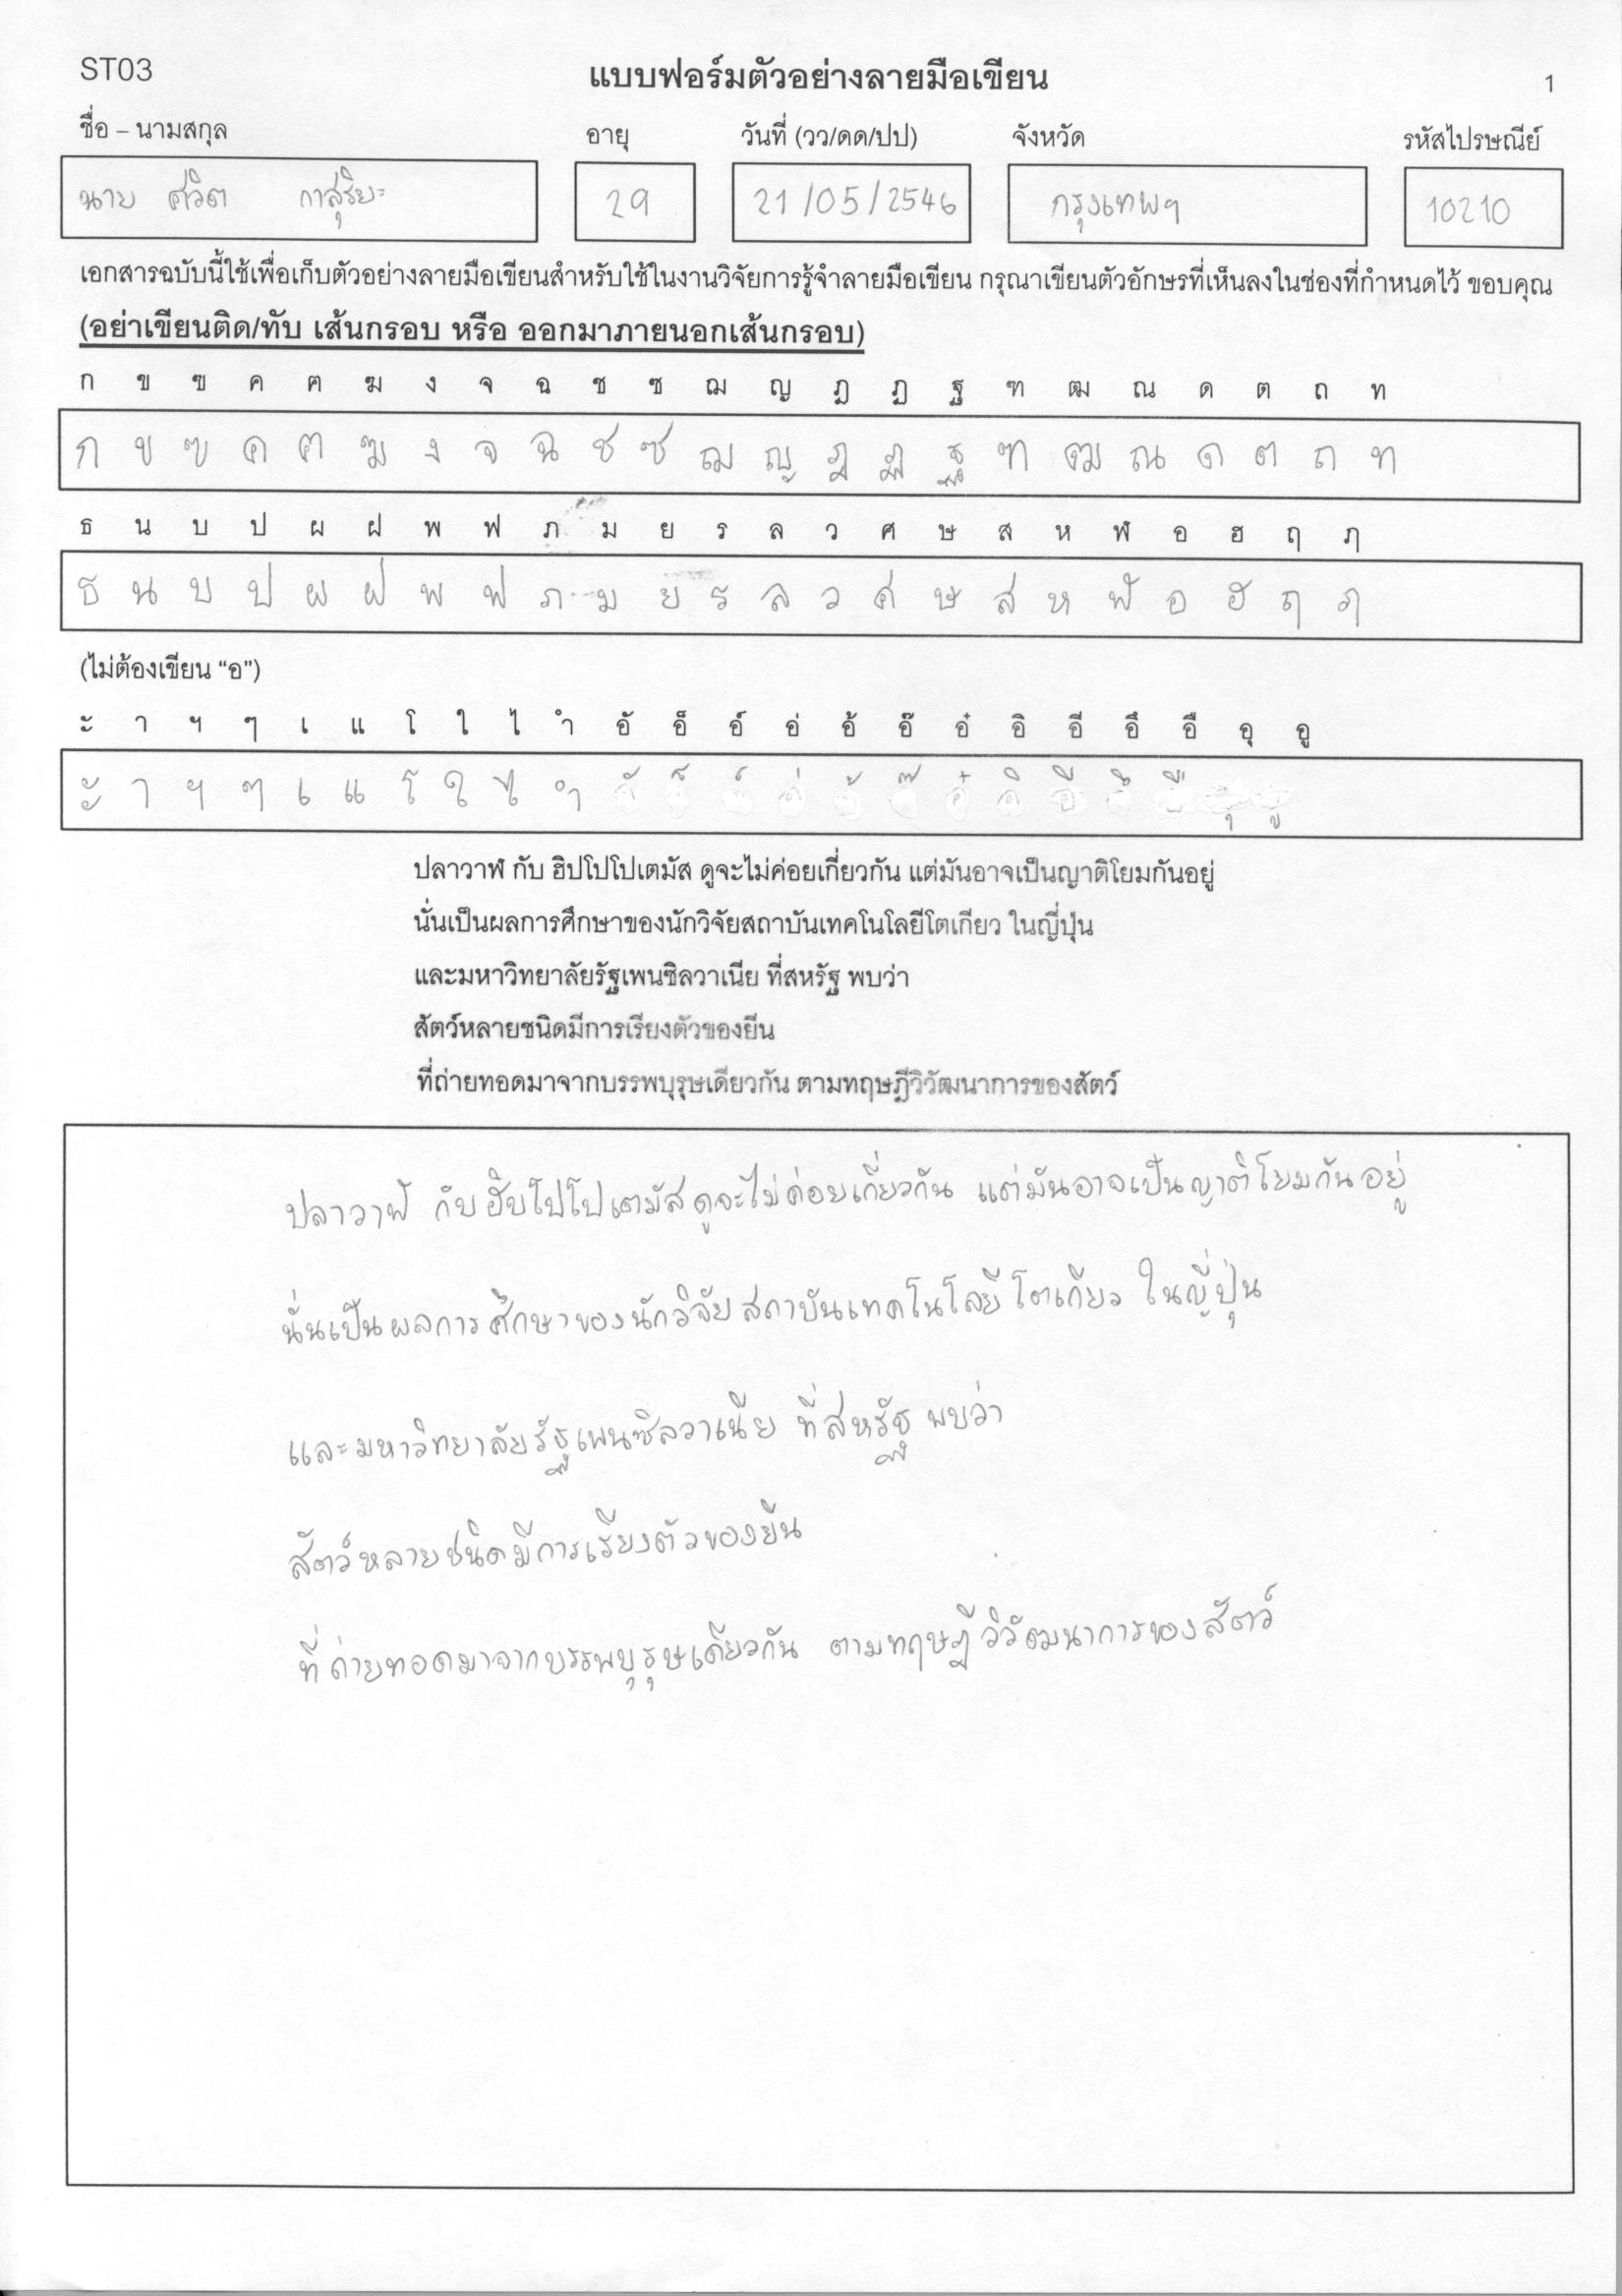 ST03
แบบฟอร์มตัวอย่างลายมือเขียน
1
ชื่อ – นามสกุล อายุ วันที่ (วว/ดด/ปป) จังหวัด รหัสไปรษณีย์
นาย ศวิต กาสุริยะ 29 21/05/2546 กรุงเทพฯ 10210
เอกสารฉบับนี้ใช้เพื่อเก็บตัวอย่างลายมือเขียนสำหรับใช้ในงานวิจัยการรู้จำลายมือเขียน กรุณาเขียนตัวอักษรที่เห็นลงในช่องที่กำหนดไว้ ขอบคุณ
(อย่าเขียนติด/ทับ เส้นกรอบ หรือ ออกมาภายนอกเส้นกรอบ)
ก ข ฃ ค ฅ ฆ ง จ ฉ ช ซ ฌ ญ ฎ ฏ ฐ ฑ ฒ ณ ด ต ถ ท
ก ข ฃ ค ฅ ฆ ง จ ฉ ช ซ ฌ ญ ฎ ฏ ฐ ฑ ฒ ณ ด ต ถ ท
ธ น บ ป ผ ฝ พ ฟ ภ ม ย ร ล ว ศ ษ ส ห ฬ อ ฮ ฤ ฦ
ธ น บ ป ผ ฝ พ ฟ ภ ม ย ร ล ว ศ ษ ส ห ฬ อ ฮ ฤ ฦ
(ไม่ต้องเขียน “อ”)
ะ า ฯ ๆ เ แ โ ใ ไ ำ อั อ็ อ์ อ่ อ้ อ๊ อ๋ อิ อี อึ อื อุ อู
ะ า ฯ ๆ เ แ โ ใ ไ ำ อั อ็ อ์ อ่ อ้ อ๊ อ๋ อิ อี อึ อื อุ อู
ปลาวาฬ กับ ฮิปโปโปเตมัส ดูจะไม่ค่อยเกี่ยวกัน แต่มันอาจเป็นญาติโยมกันอยู่
นั่นเป็นผลการศึกษาของนักวิจัยสถาบันเทคโนโลยีโตเกียว ในญี่ปุ่น
และมหาวิทยาลัยรัฐเพนซิลวาเนีย ที่สหรัฐ พบว่า
สัตว์หลายชนิดมีการเรียงตัวของยีน
ที่ถ่ายทอดมาจากบรรพบุรุษเดียวกัน ตามทฤษฎีวิวัฒนาการของสัตว์
ปลาวาฬ กับฮิบโปโปเตมัสดูจะไม่ค่อยเกี่ยวกัน แต่มันอาจเป็นญาติโยมกันอยู่
นั่นเป็นผลการศึกษาของนักวิจัยสถาบันเทคโนโลยีโตเกียว ในญี่ปุ่น
และมหาวิทยาลัยรัฐเพนซิลวาเนีย ที่สหรัฐ พบว่า
สัตว์หลายชนิดมีการเรียงตัวของยีน
ที่ถ่ายทอดมาจากบรรพบุรุษเดียวกัน ตามทฤษฎีวิวัฒนาการของสัตว์